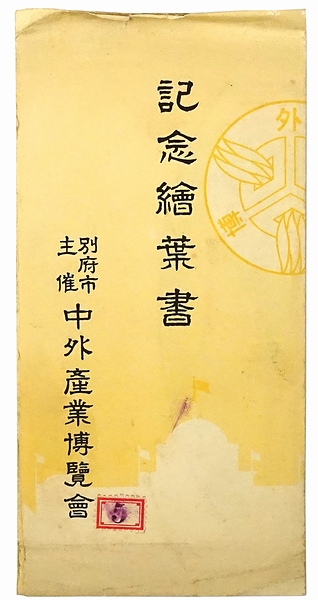 記念繪葉書
別府市
主催
中外產業博覽會
外
博
5